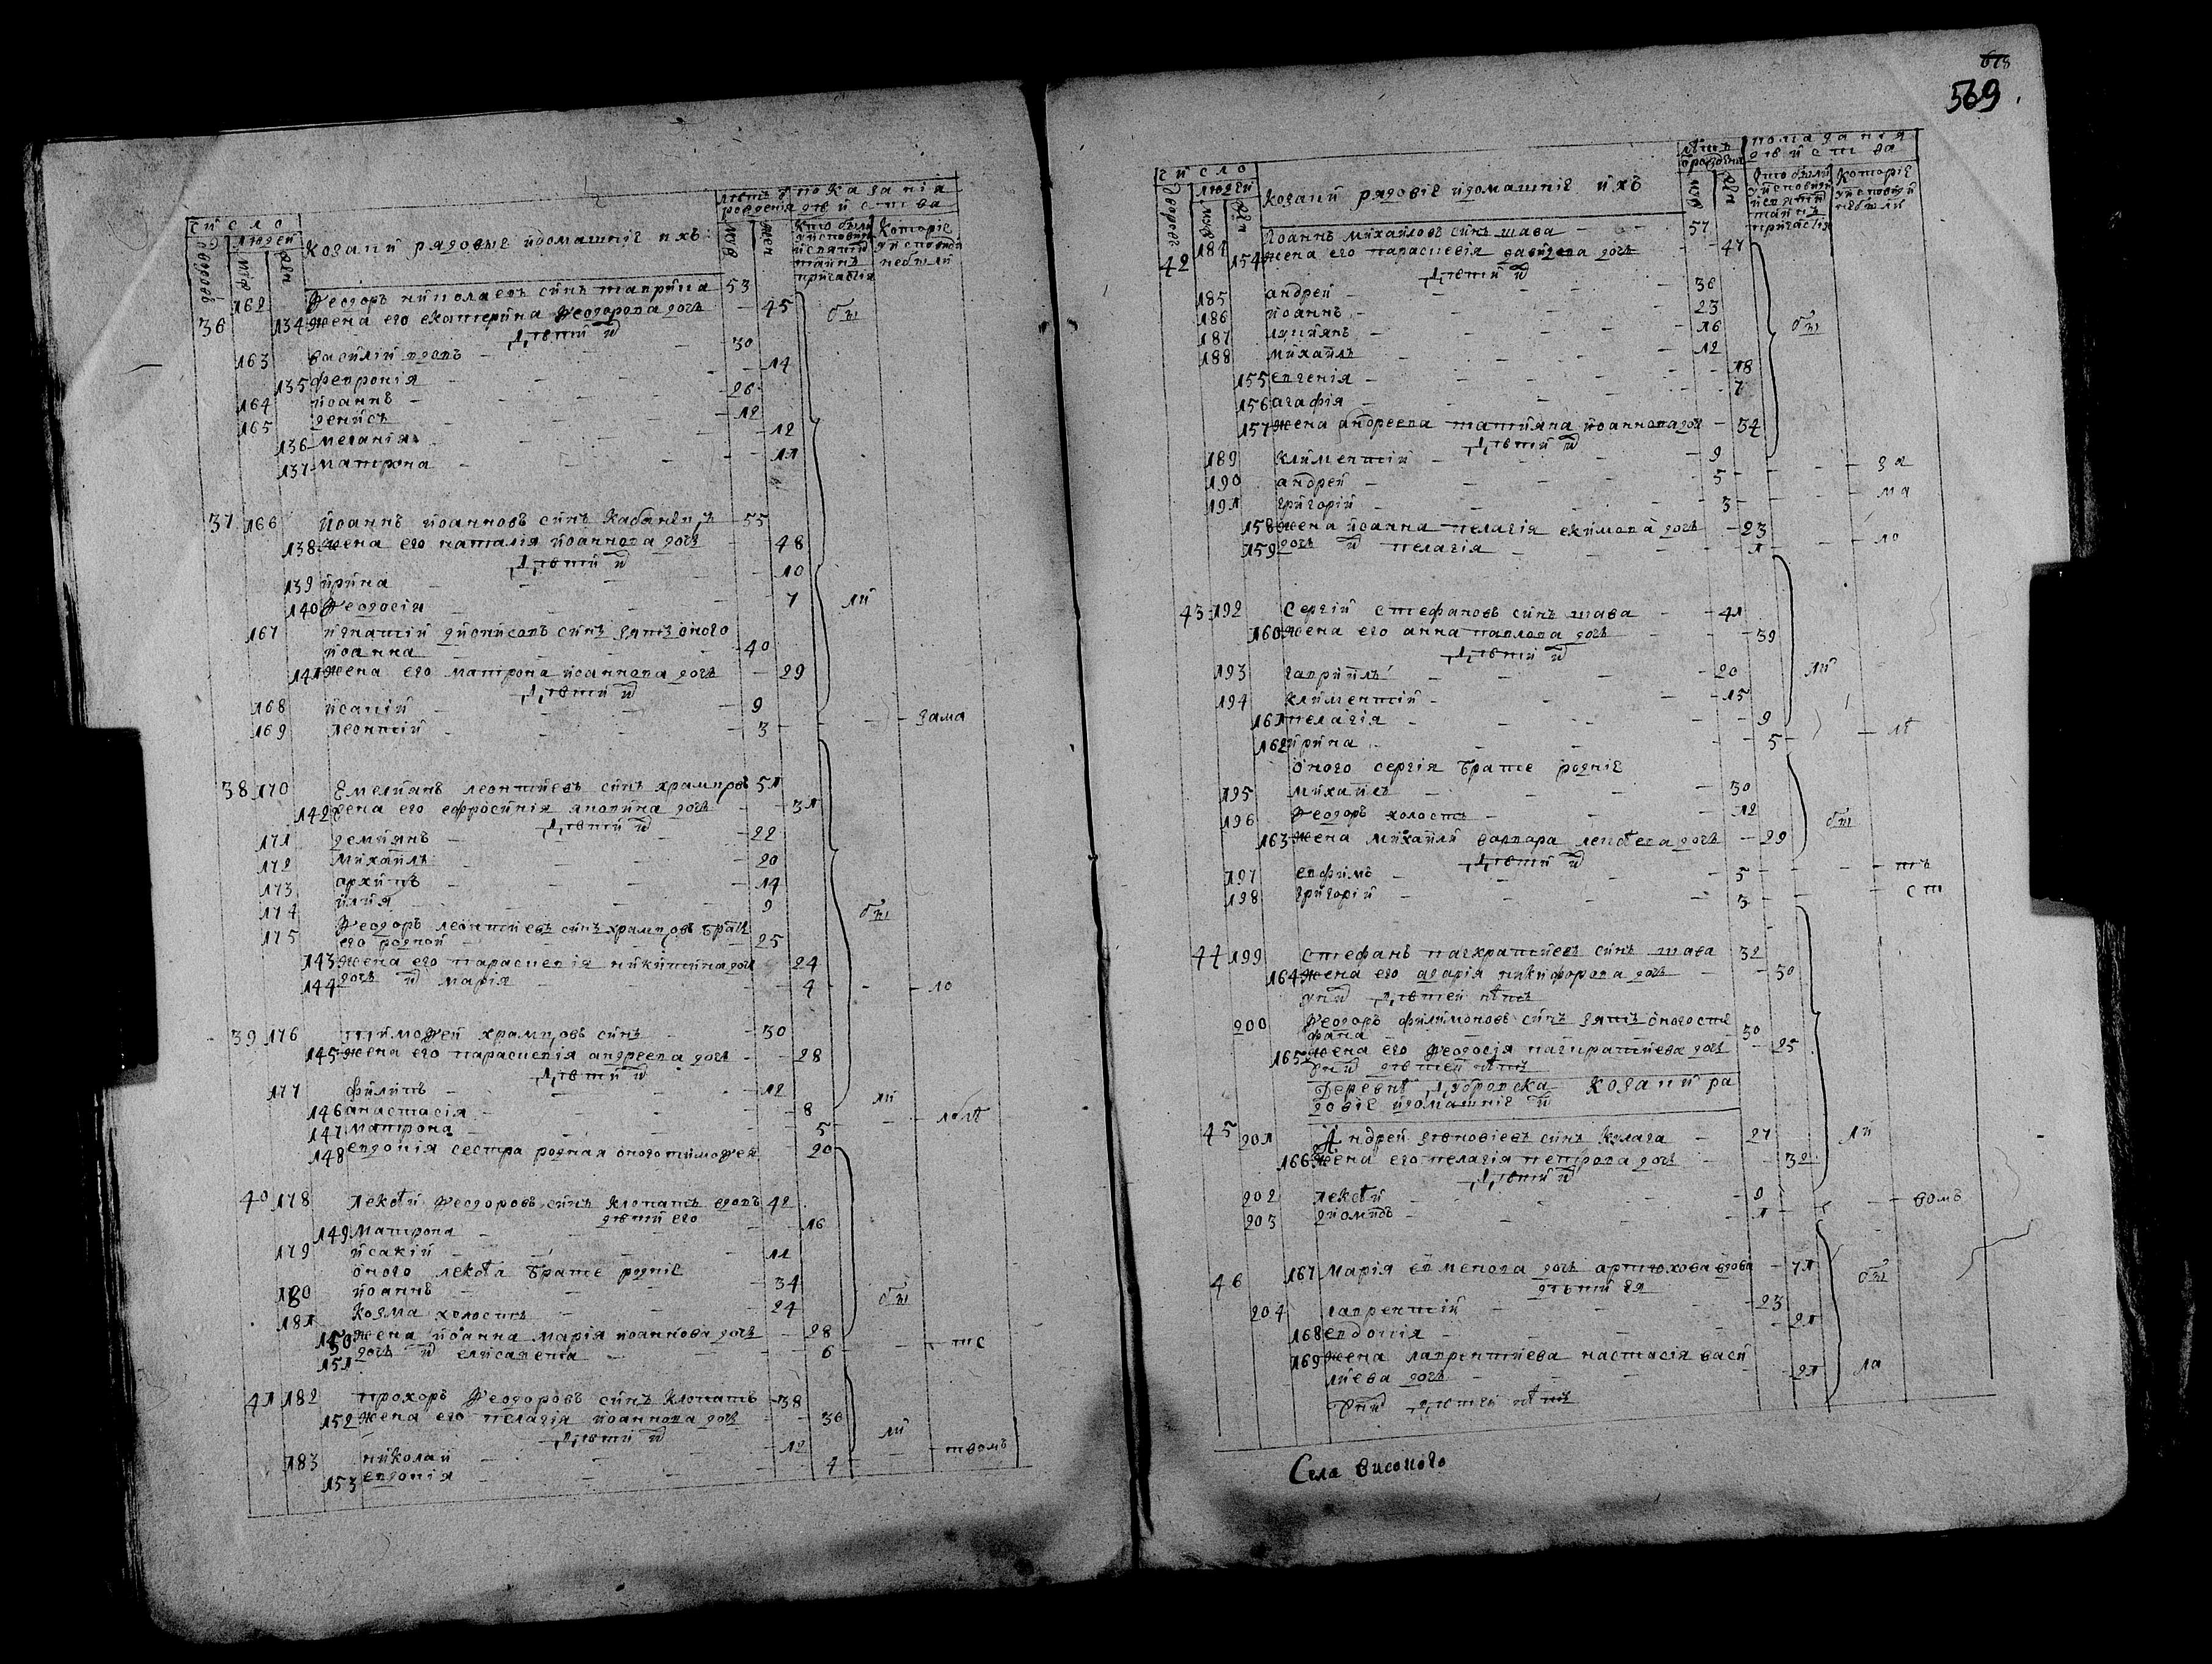 число
дворовъ
людей
муж
жен
козаки рядовые идомашніе ихъ
лѣтъ ѿ рождения
муж
жен
показаніа действа
кто были уисповѣди исвятыхъ таинъ причастія
которіе уисповѣди небыли
36 162 Ѳеодоръ николаевъ синъ гаврища 53
134 жена его екатерина Ѳеодорова дочъ 45 бы
дѣти ихъ
163 василій вдовъ 30
135 февронія 14
164 иоаннъ 26
165 денисъ 12
136 меланія 12
137 матрона 11
37 166 иоаннъ иоанновъ синъ кабанецъ 55
138 жена его наталія иоаннова дочъ 48
дѣти ихъ
139 ирина 10
140 Ѳеодосія 7 ли
167 игнатій дионисовъ синъ зять оного
иоанна 40
141 жена его матрона иоаннова дочъ 29
дѣти ихъ
168 исакій 9
169 леонтій 3 зама
38 170 Емелиянъ леонтиевъ синъ храмцовъ 51
142 жена его ефросинія яковина дочъ 31
дѣти ихъ
171 демиянъ 22
172 михаилъ 20
173 архипъ 14
174 илия 9 бы
175 Ѳеодоръ леонтиевъ синъ храмцовъ братъ
его родной 25
143 жена его параскевія никитина дочъ 24
144 дочъ ихъ марія 4 ло
39 176 тимоѲей храмцовъ синъ 30
145 жена его параскевія андреева дочъ 28
дѣти ихъ
177 филипъ 12 ли
146 анастасія 8
147 матрона 5 лолѣ
148 евдокія сестра родная оного тимоѲея 20
40 178 лексѣй Ѳеодоровъ синъ клопатъ вдовъ 42
дѣти его
149 матрона 16
179 исакій 11
оного лексѣа братѣ родніе
180 иоаннъ 34
181 козма холостъ 24 бы
150 жена иоанна марія иоаннова дочъ 28
151 дочъ ихъ елисавента 6 тс
41 182 прохоръ Ѳеодоровъ синъ клопатъ 38
152 жена его пелагія иоаннова дочъ 36
дѣти ихъ ли
183 николай 12
153 евдокія 4 твомъ
618
569
число
дворовъ
людей
муж
жен
козаки рядовіе идомашніе ихъ
лѣтъ ѿ рождения
муж
жен
показания действа
кто были уисповѣди исвятыхъ таинъ причастія
которіе уисповѣди небыли
42 184 Иоаннъ михайловъ синъ шава 57
154 жена его параскевія давидова дочъ 47
дѣти ихъ
185 андрей 36
186 иоаннъ 23 бы
187 лукиянъ 16
188 михаилъ 12
155 евгенія 18
156 агафія 7
157 жена андреева татияна иоаннова дочъ 34
дѣти ихъ
189 климентій 9
190 андрей 5 за
191 григорій 3 ма
158 жена иоанна пелагія екимова дочъ 23
159 дочъ ихъ пелагія 1 ло
43 192 Сергій стефановъ синъ шава 41
160 жена его анна павлова дочъ 39
дѣти ихъ
193 гавриилъ 20 ли
194 климентій 15
161 пелагія 9
162 ирина 5 лѣ
оного сергія братѣ родніе
195 михаилъ 30
196 Ѳеодоръ холостъ 12 бы
163 жена михаила варвара лексѣева дочъ 29
дѣти ихъ
197 евфимъ 5 тъ
198 григорій 3 ст
44 199 стефанъ панкратиевъ синъ шава 32
164 жена его агарія никифорова дочъ 30
уних дѣтей нѣтъ
200 Ѳеодоръ филимоновъ синъ зять оного сте
фана 30
165 жена его Ѳеодосія панкратиева дочъ 25
уних дѣтей нѣтъ
Деревнѣ дубровска козаки ра
довіе идомашніе ихъ
45 201 Андрей зѣновіевъ синъ кулага 27 ли
166 жена его пелагія петрова дочъ 32
дѣти ихъ
202 лексѣй 9
203 диомидъ 1 вомъ
46 167 марія евменова дочъ артюхова вдова 71 бы
дѣти ея
204 лаврентій 23
168 евдокія 21
169 жена лаврентиева настасія васи
лиева дочъ 21 ла
уних дѣтей нѣтъ
Села високого